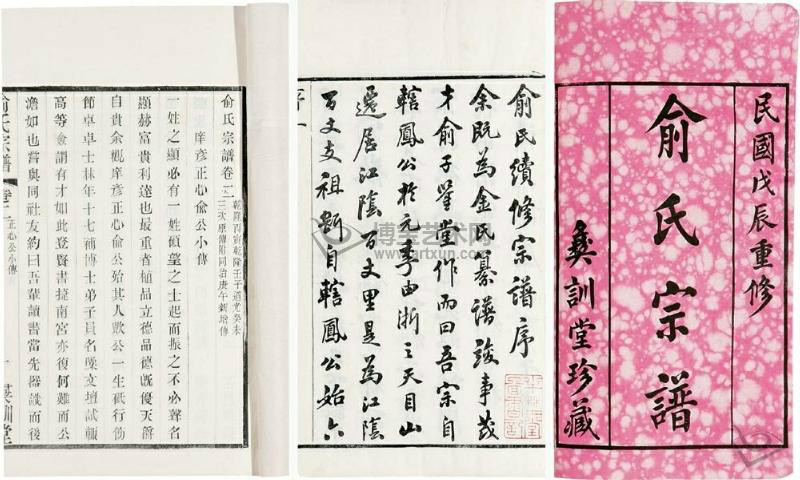 民國戊辰重修
俞氏宗譜
彝訓堂珍藏
俞氏續修宗譜序
余既為金氏纂譜竣事茂
才俞子篁堂作而曰吾宗自
轄鳳公於元季由浙之天目山
遷居江陰百丈里是為江陰
百丈支祖斷自轄鳳公始六
序一
俞氏宗譜卷二
乾隆丙寅乾隆壬子道光癸未
三次原傳附同治庚午新增傳
庠彥正心俞公小傳
一姓之顯必有一姓碩望之士起而振之不必聲名
顯赫富貴利達也最重者植品立德品德既優天爵
自貴余概庠彥正心俞公殆其人歟公一生砥行飭
節卓卓士林年十七補博士弟子員名噪文壇試輒
高等僉謂有才如此登賢書捷南宮亦復何難而公
澹如也嘗與同社友約曰吾輩讀書當先器識而後
俞氏宗譜 卷二 正心公小傳 一 彝訓堂
博宝艺术网
www.artxun.com